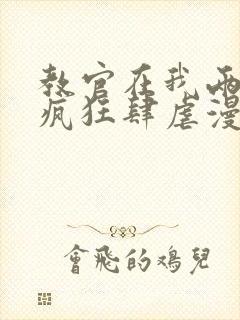 教官在我兩
瘋狂肆虐漫
會飛的鸡兒